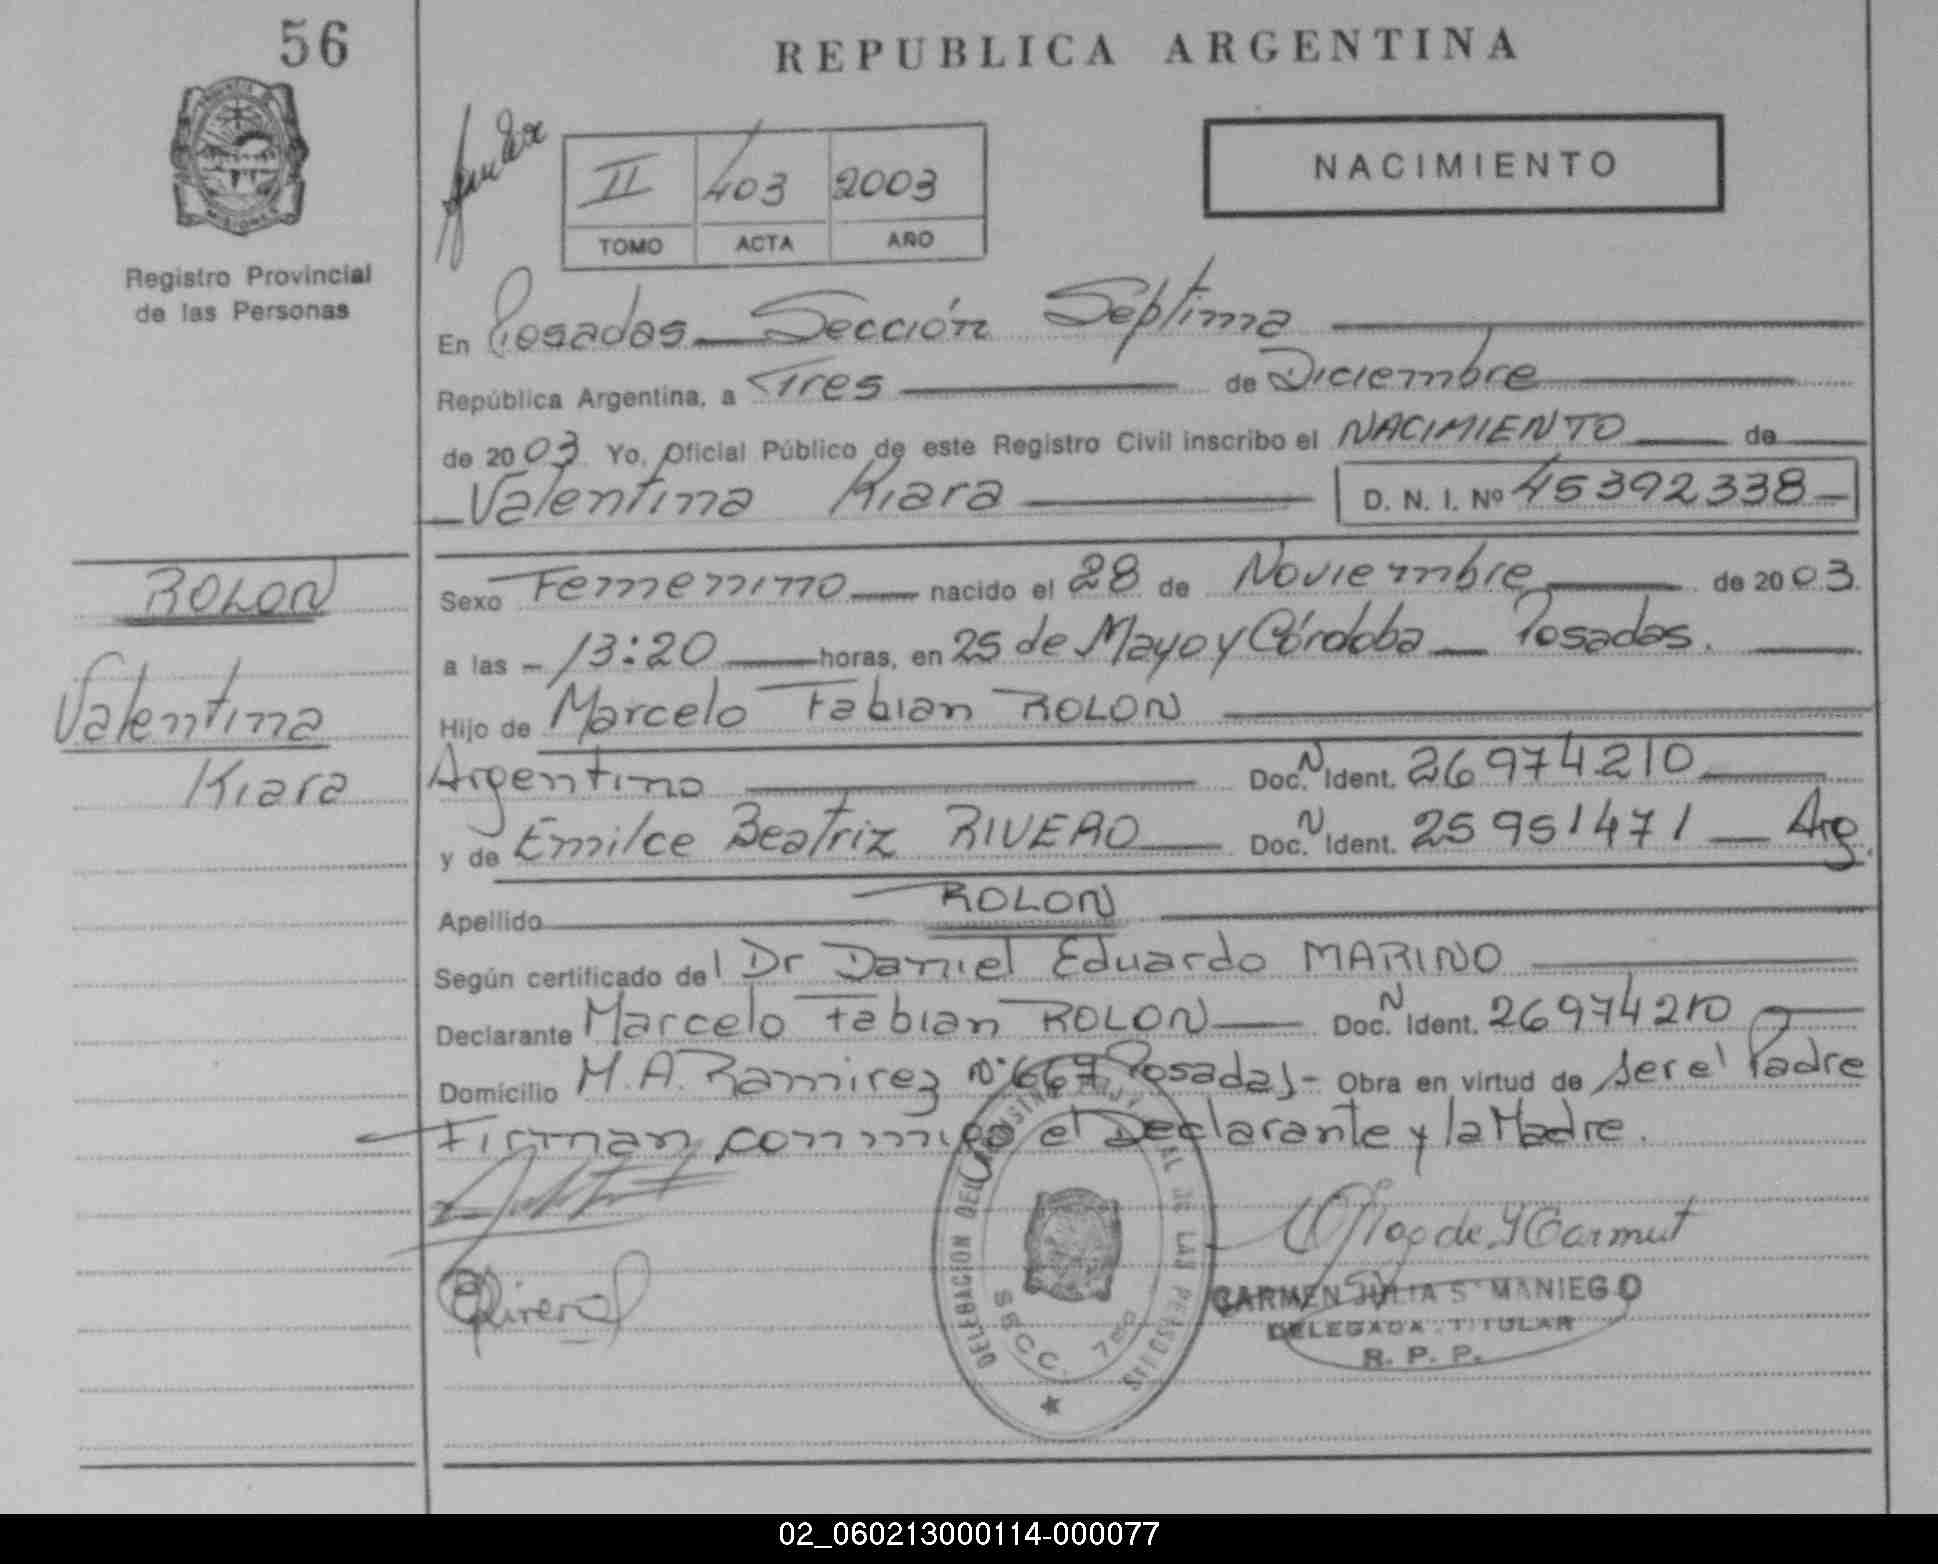 56
REPUBLICA ARGENTINA
NACIMIENTO
II 403 2003
TOMO ACTA AÑO
MISIONES
Registro Provincial
de las Personas
En Posadas Sección Séptima
República Argentina, a Tres de Diciembre
de 2003 Yo, Oficial Público de este Registro Civil inscribo el NACIMIENTO de
Valentina Kiara D. N. I. Nº 45392338
ROLON
Valentina
Kiara
Sexo Femenino nacido el 28 de Noviembre de 2003.
a las 13:20 horas, en 25 de Mayo y Córdoba Posadas.
Hijo de Marcelo Fabian ROLON
Argentino Doc. N Ident. 26974210
y de Emilce Beatriz RIVERO Doc. N Ident. 25951471 Arg.
Apellido ROLON
Según certificado del Dr Daniel Eduardo MARINO
Declarante Marcelo Fabian ROLON Doc. N Ident. 26974210
Domicilio M. A. Ramirez Nº 667 Posadas - Obra en virtud de ser el Padre
Firman conmigo el Declarante y la Madre.
DELEGACION DEL REGISTRO PROVINCIAL DE LAS PERSONAS
SECC. 7ma
CARMEN JULIA S MANIEGO
DELEGADA TITULAR
R. P. P.
02_060213000114-000077